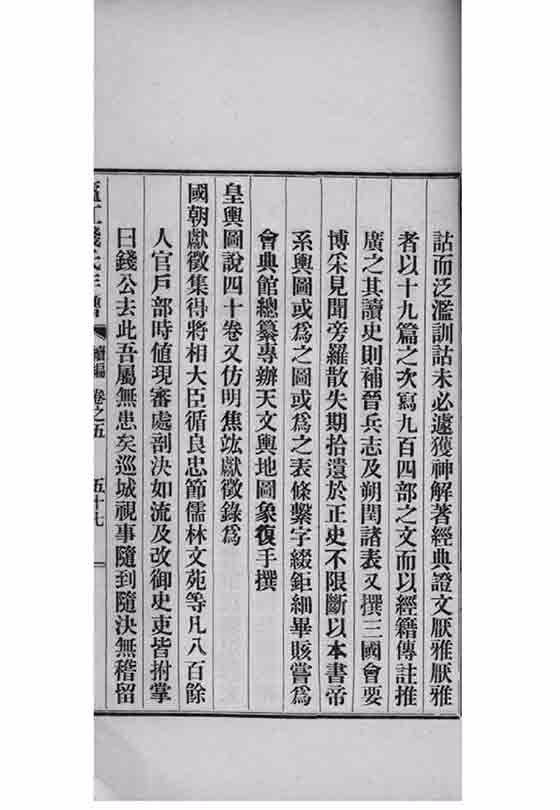 詁而泛濫訓詁未必遽獲神解著經典證文厭雅厭雅
者以十九篇之次寫九百四部之文而以經籍傳註推
廣之其讀史則補晉兵志及朔閏諸表又撰三國會要
博采見聞旁羅散失期拾遺於正史不限斷以本書帝
系輿圖或爲之圖或爲之表條繫字綴鉅細畢賅嘗爲
會典館總纂專辦天文輿地圖象復手撰
皇輿圖說四十卷又仿明焦竑獻徵錄爲
國朝獻徵集得將相大臣循良忠節儒林文苑等凡八百餘
人官戶部時値現審處剖決如流及改御史吏皆拊掌
曰錢公去此吾屬無患矣巡城視事隨到隨決無稽留
續編 卷之五 五十七